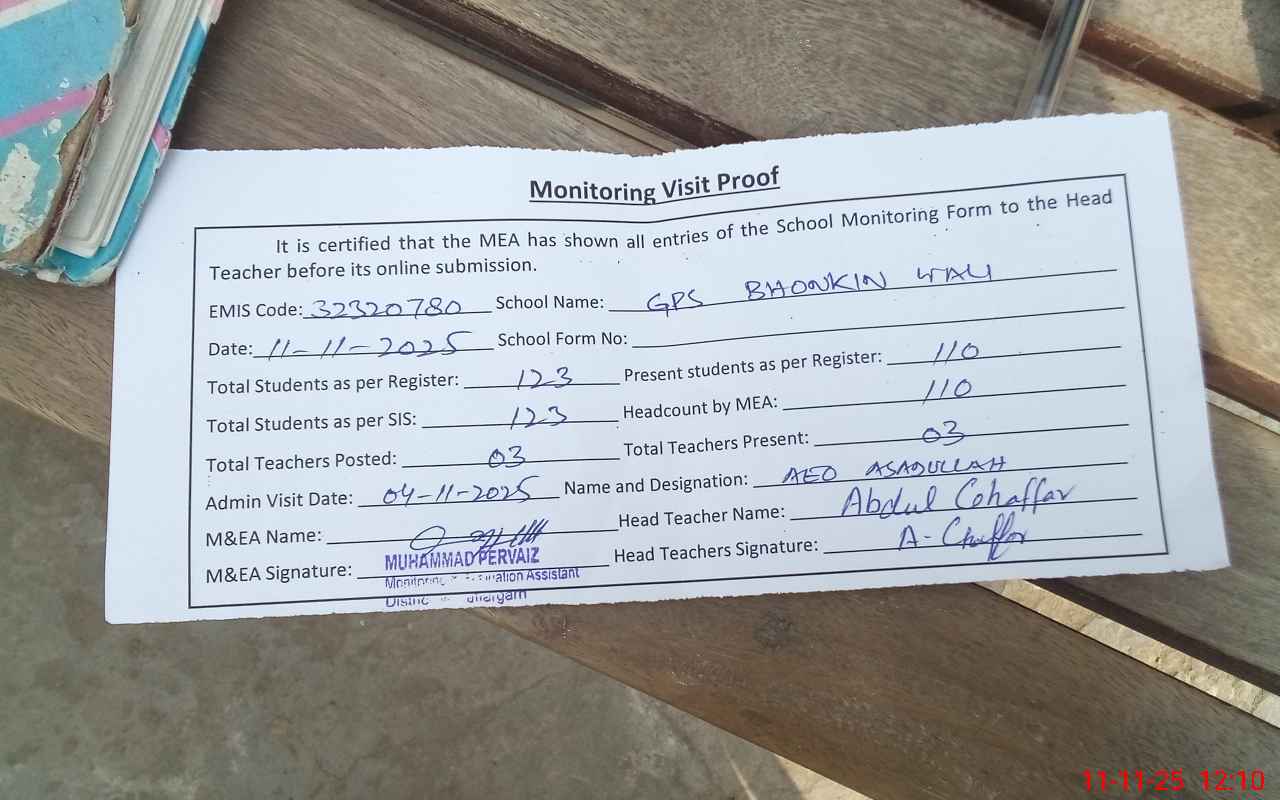 Monitoring Visit Proof
It is certified that the MEA has shown all entries of the School Monitoring Form to the Head
Teacher before its online submission.
EMIS Code: 32320780 School Name: GPS BHONKIN WALI
Date: 11-11-2025 School Form No:
Total Students as per Register: 123 Present students as per Register: 110
Total Students as per SIS: 123 Headcount by MEA: 110
Total Teachers Posted: 03 Total Teachers Present: 03
Admin Visit Date: 04-11-2025 Name and Designation: AEO ASADULLAH
M&EA Name: Head Teacher Name: Abdul Ghaffar
M&EA Signature: MUHAMMAD PERVAIZ Head Teachers Signature: A- Ghaffar
Assistant
11-11-25 12:10